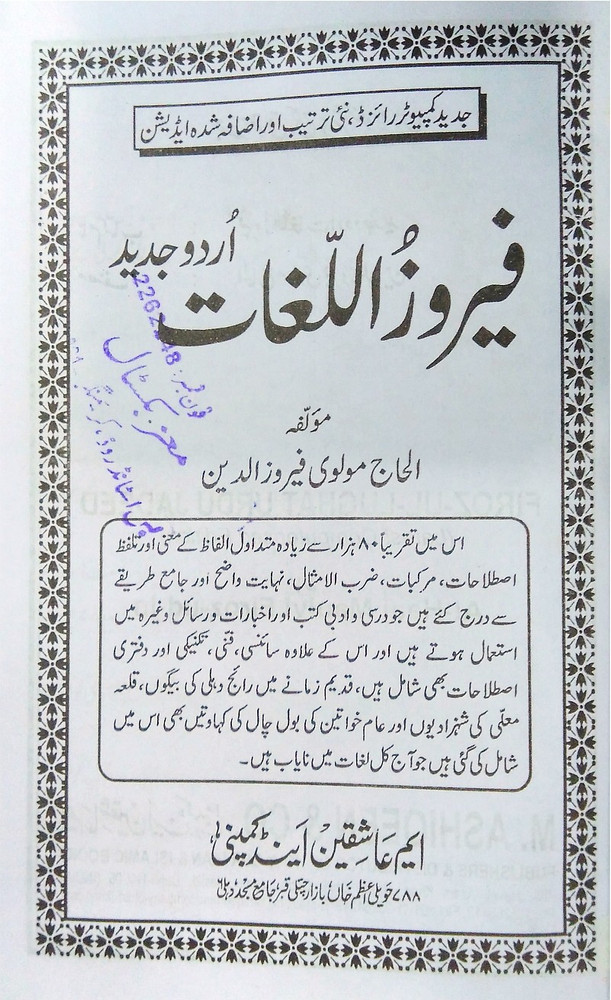 جدید کمپیوٹررائزڈ، نئی ترتیب اور اضافہ شدہ ایڈیشن
فیروزُ اللّغات
اُردو جدید
مؤلّفہ
الحاج مولوی فیروز الدین
اس میں تقریباً ۸۰ ہزار سے زیادہ متداول الفاظ کے معنی اور تلفظ
اصطلاحات، مرکبات، ضرب الامثال، نہایت واضح اور جامع طریقے
سے درج کئے ہیں جو درسی وادبی کتب اور اخبارات و رسائل وغیرہ میں
استعمال ہوتے ہیں اور اس کے علاوہ سائنسی، فنّی، تکنیکی اور دفتری
اصطلاحات بھی شامل ہیں، قدیم زمانے میں رائج دہلی کی بیگموں، قلعہ
معلّٰی کی شہزادیوں اور عام خواتین کی بول چال کی کہاوتیں بھی اس میں
شامل کی گئی ہیں جو آج کل لغات میں نایاب ہیں۔
ایم عاشقین اینڈ کمپنی
۷۸۸ حویلی اعظم خاں بازار چتلی قبر جامع مسجد دہلی
فون نمبر:
معز بکسٹال
بس اسٹانڈ روڈ، کریمنگر
M. ASHIQEEN & CO.
FIROZ-UL-LUGHAT URDU JADEED